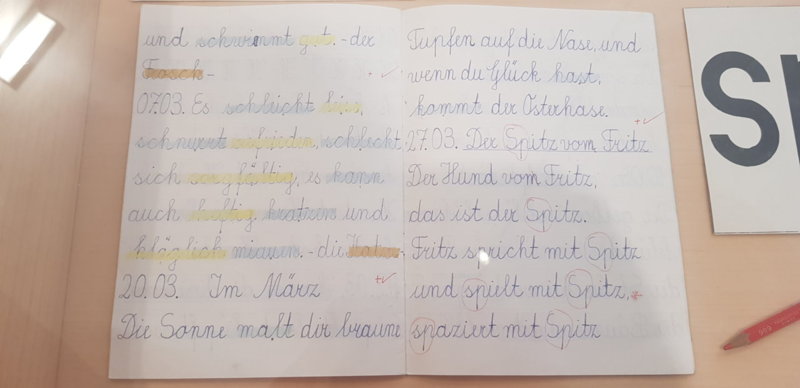 und schwimmt gut. - der
Frosch -
07.03. Es schleicht leise,
schnurrt zufrieden, schleckt
sich sorgfältig, es kann
auch heftig kratzen und
kläglich miauen. - die Katze -
20.03. Im März
Die Sonne malt dir braune
Tupfen auf die Nase, und
wenn du Glück hast,
kommt der Osterhase.
27.03. Der Spitz vom Fritz
Der Hund vom Fritz,
das ist der Spitz.
Fritz spricht mit Spitz
und spielt mit Spitz,
spaziert mit Spitz